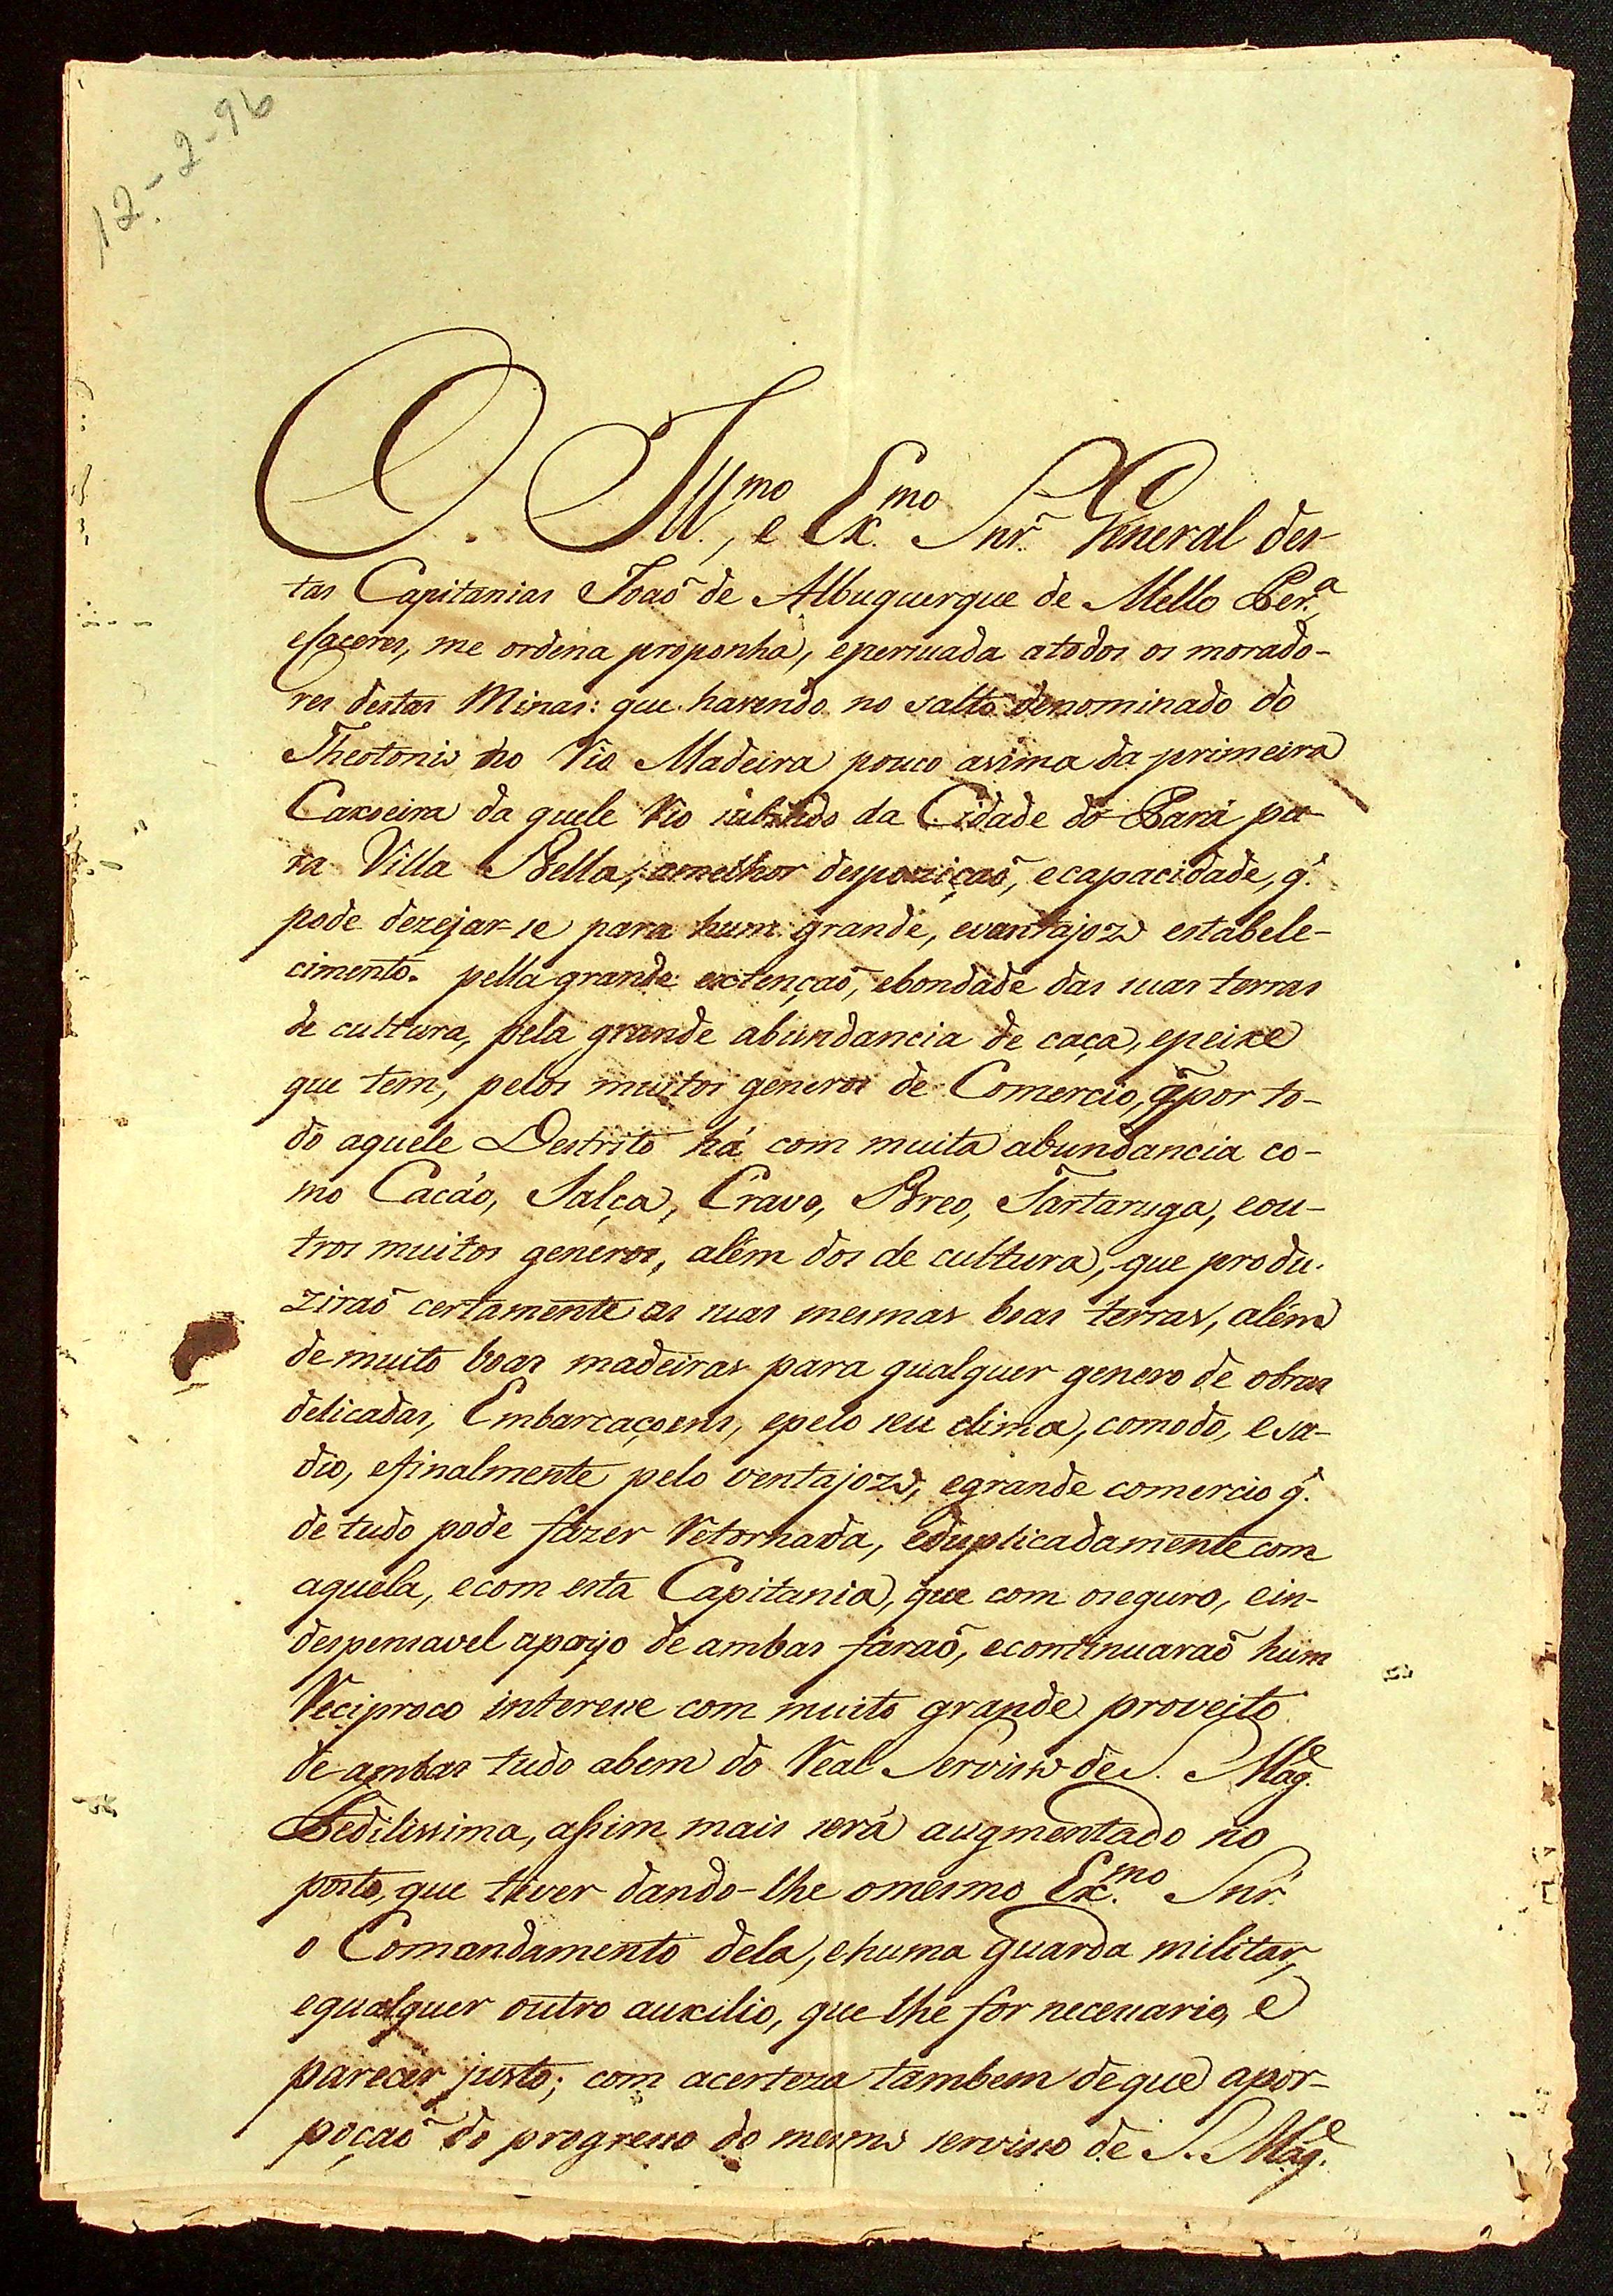 12-2-96
O Ill.mo, e Ex.mo Snr. General des-
tas Capitanias Joaõ de Albuquerque de Mello Per.a,
eCaceres, me ordena proponha, epersuada atodos os morado-
res destas Minas: que havendo no salto denominado do
Theotonio no Rio Madeira pouco asima da primeira
Caxoeira da quele Rio subindo da Cidade do Pará pa-
ra Villa Bella, amelhor despoziçaõ, ecapacidade, q̃.
pode dezejar-se para hum grande, evantajozo estabele-
cimento. pella grande extençaõ, ebondade das suas terras
de cultura, pela grande abundancia de caça, epeixe
que tem, pelos muitos generos de Comercio, q̃ por to-
do aquele Destrito há com muita abundancia co-
mo Cacáo, Salça, Cravo, Breo, Tartaruga, eou-
tros muitos generos, além dos de cultura, que produ-
ziraõ certamente as suas mesmas boas terras, além
de muito boas madeiras para qualquer genero de obras
delicadas, Embarcaçoens, epelo seu clima, comodo, e sa-
dio, efinalmente pelo ventajozo, egrande comercio q̃.
de tudo pode fazer Retornada, eduplicadamente com
aquela, ecom esta Capitania, que com oseguro, ein-
despensavel apoyo de ambas faraõ, econtinuaraõ hum
Reciproco interesse com muito grande proveito
de ambas tudo abem do Real Servisio de S. Mag.e
Fedilissima, assim mais será augmentado no
posto, que tiver dando-lhe omesmo Ex.mo Snr.
o Comandamento dela, ehuma Guarda militar,
equalquer outro auxilio, que lhe for necessario, e
parecer justo; com acerteza tambem deque apor-
poçaõ do progresso do mesmo serviso de S. Mag.e